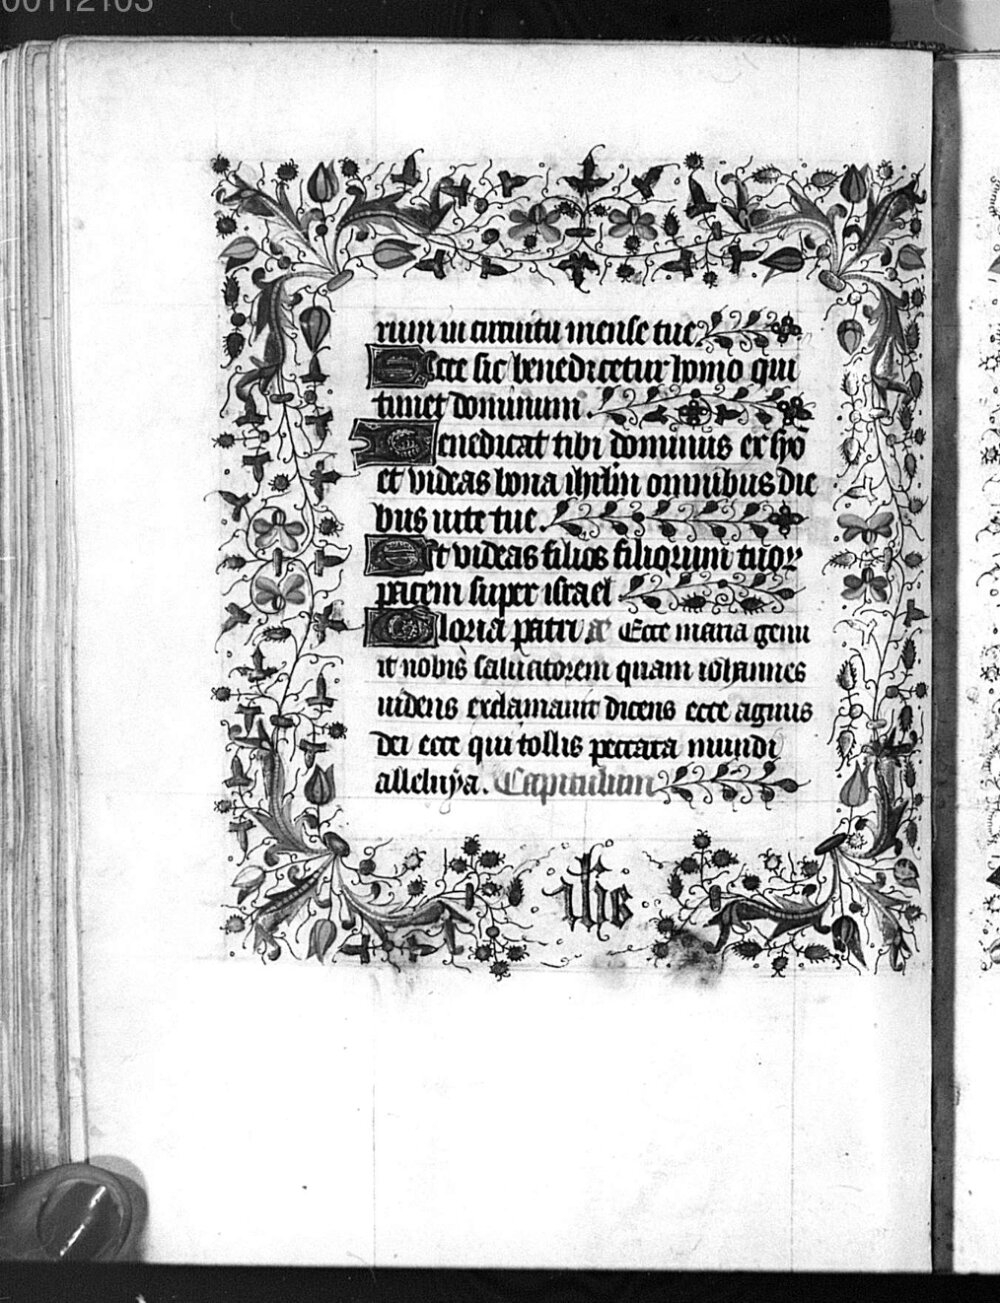 00112103
rum in circuitu mense tue
Ecce sic benedicetur homo qui
timet dominum
Benedicat tibi dominus ex syō
et videas bona ihrlm omnibus die
bus uite tue.
Et videas filios filiorum tuor
pacem super israel
Gloria patri Ecce maria genu
it nobis saluatorem quam iohannes
uidens exclamauit dicens ecce agnus
dei ecce qui tollis peccata mundi
alleluya. Capitulum